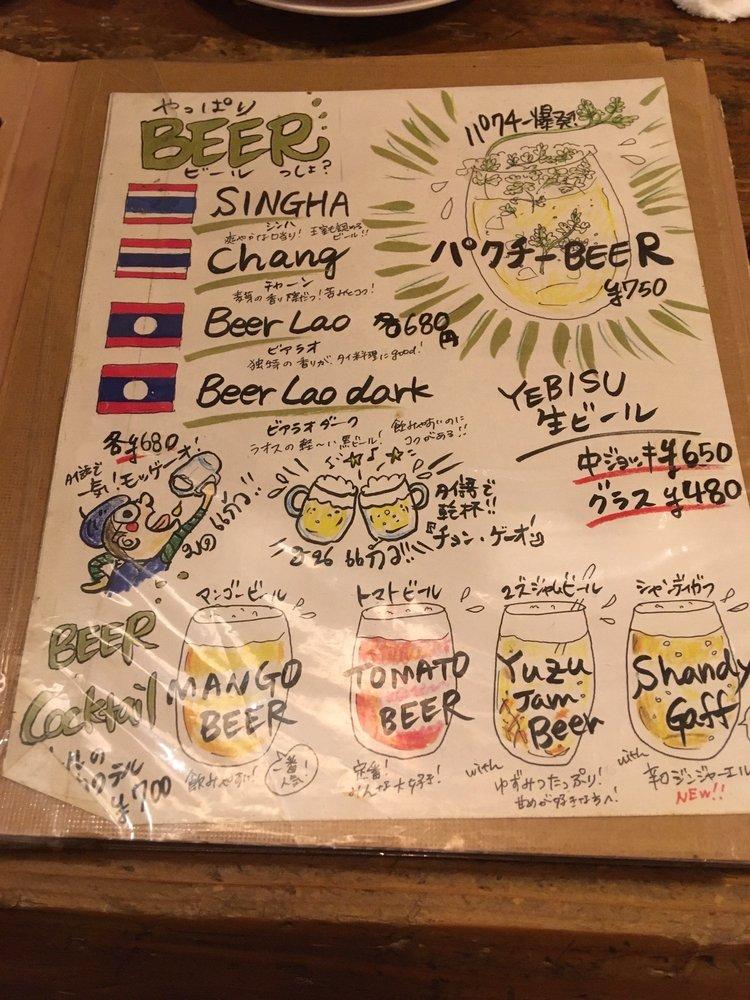 やっぱり
BEER
ビール っしょ?
SINGHA
シンハ
爽やかな口当り! 王室も認める
ビール!!
Chang
チャーン
麦芽の香り際だつ! 苦みとコク!
Beer Lao 各680円
ビアラオ
独特の香りが、タイ料理にgood!
Beer Lao dark
ビアラオダーク
ラオスの軽〜い黒ビール! 飲みやすいのに
コクがある!!
各¥680
パクチー爆発!
パクチーBEER
¥750
YEBISU
生ビール
中ジョッキ¥650
グラス ¥480
タイ語で
一気! モッゲーオ!
タイ語で
乾杯!!
『チョン・ゲーオ』
BEER
Cocktail
ビールの
カクテル
¥700
マンゴービール
MANGO
BEER
飲みやすい!
一番
人気!
トマトビール
TOMATO
BEER
定番!
みんな大好き!
ユズジャムビール
Yuzu
Jam
Beer
with
ゆずみつたっぷり!
甘めが好きな方へ!
シャンディガフ
Shandy
Gaff
with
辛口ジンジャーエール
NEW!!